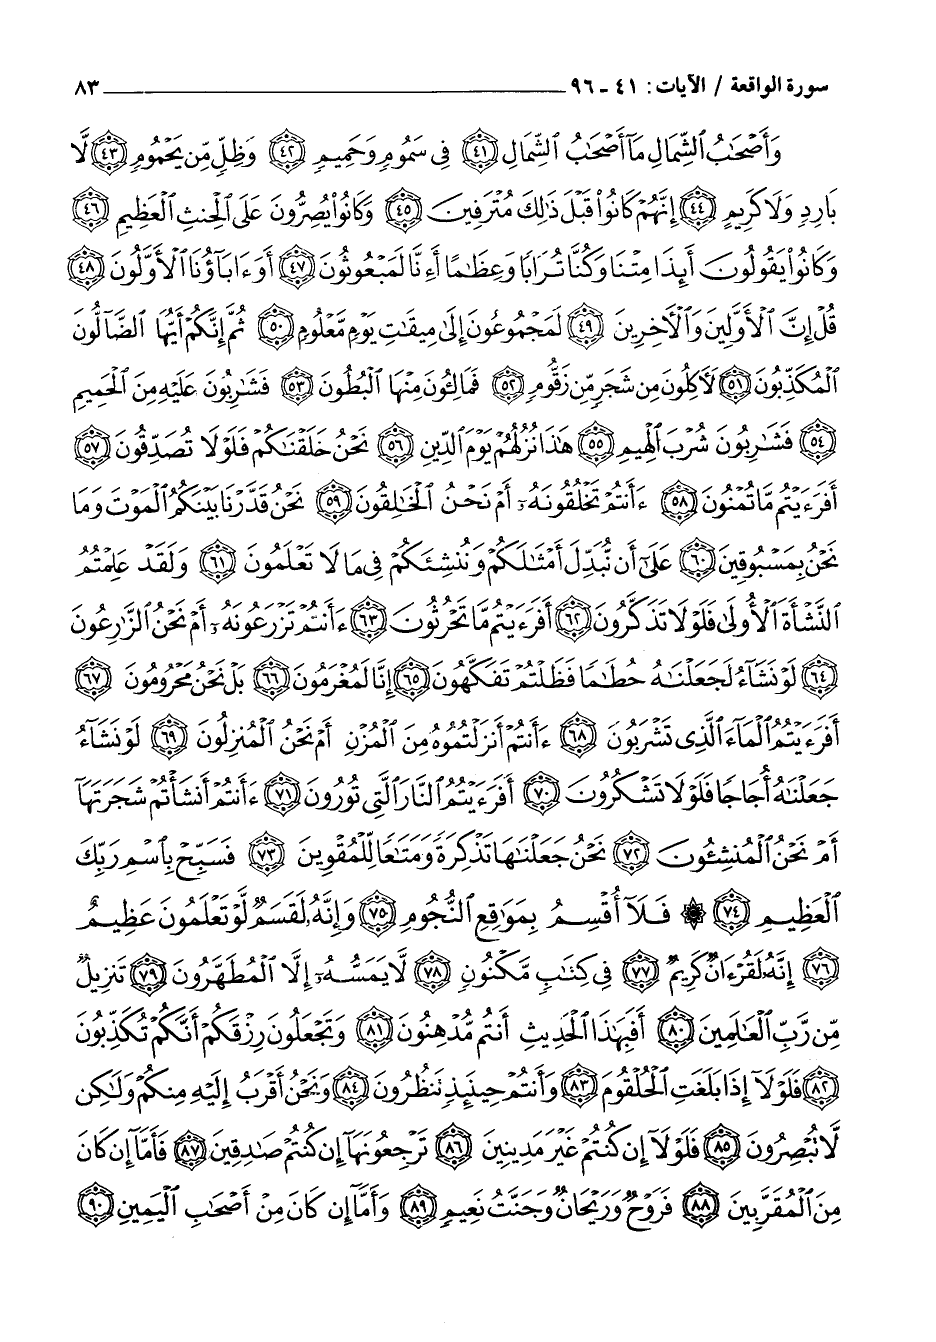 سورة الواقعة / الآيات: ٤١ - ٩٦ ٨٣
وَأَصْحَٰبُ ٱلشِّمَالِ مَآ أَصْحَٰبُ ٱلشِّمَالِ ٤١ فِى سَمُومٍ وَحَمِيمٍ ٤٢ وَظِلٍّ مِّن يَحْمُومٍ ٤٣ لَّا
بَارِدٍ وَلَا كَرِيمٍ ٤٤ إِنَّهُمْ كَانُوا۟ قَبْلَ ذَٰلِكَ مُتْرَفِينَ ٤٥ وَكَانُوا۟ يُصِرُّونَ عَلَى ٱلْحِنثِ ٱلْعَظِيمِ ٤٦
وَكَانُوا۟ يَقُولُونَ أَئِذَا مِتْنَا وَكُنَّا تُرَابًا وَعِظَٰمًا أَءِنَّا لَمَبْعُوثُونَ ٤٧ أَوَءَابَآؤُنَا ٱلْأَوَّلُونَ ٤٨
قُلْ إِنَّ ٱلْأَوَّلِينَ وَٱلْءَاخِرِينَ ٤٩ لَمَجْمُوعُونَ إِلَىٰ مِيقَٰتِ يَوْمٍ مَّعْلُومٍ ٥٠ ثُمَّ إِنَّكُمْ أَيُّهَا ٱلضَّآلُّونَ
ٱلْمُكَذِّبُونَ ٥١ لَءَاكِلُونَ مِن شَجَرٍ مِّن زَقُّومٍ ٥٢ فَمَالِـُٔونَ مِنْهَا ٱلْبُطُونَ ٥٣ فَشَٰرِبُونَ عَلَيْهِ مِنَ ٱلْحَمِيمِ
٥٤ فَشَٰرِبُونَ شُرْبَ ٱلْهِيمِ ٥٥ هَٰذَا نُزُلُهُمْ يَوْمَ ٱلدِّينِ ٥٦ نَحْنُ خَلَقْنَٰكُمْ فَلَوْلَا تُصَدِّقُونَ ٥٧
أَفَرَءَيْتُم مَّا تُمْنُونَ ٥٨ ءَأَنتُمْ تَخْلُقُونَهُۥٓ أَمْ نَحْنُ ٱلْخَٰلِقُونَ ٥٩ نَحْنُ قَدَّرْنَا بَيْنَكُمُ ٱلْمَوْتَ وَمَا
نَحْنُ بِمَسْبُوقِينَ ٦٠ عَلَىٰٓ أَن نُّبَدِّلَ أَمْثَٰلَكُمْ وَنُنشِئَكُمْ فِى مَا لَا تَعْلَمُونَ ٦١ وَلَقَدْ عَلِمْتُمُ
ٱلنَّشْأَةَ ٱلْأُولَىٰ فَلَوْلَا تَذَكَّرُونَ ٦٢ أَفَرَءَيْتُم مَّا تَحْرُثُونَ ٦٣ ءَأَنتُمْ تَزْرَعُونَهُۥٓ أَمْ نَحْنُ ٱلزَّٰرِعُونَ
٦٤ لَوْ نَشَآءُ لَجَعَلْنَٰهُ حُطَٰمًا فَظَلْتُمْ تَفَكَّهُونَ ٦٥ إِنَّا لَمُغْرَمُونَ ٦٦ بَلْ نَحْنُ مَحْرُومُونَ ٦٧
أَفَرَءَيْتُمُ ٱلْمَآءَ ٱلَّذِى تَشْرَبُونَ ٦٨ ءَأَنتُمْ أَنزَلْتُمُوهُ مِنَ ٱلْمُزْنِ أَمْ نَحْنُ ٱلْمُنزِلُونَ ٦٩ لَوْ نَشَآءُ
جَعَلْنَٰهُ أُجَاجًا فَلَوْلَا تَشْكُرُونَ ٧٠ أَفَرَءَيْتُمُ ٱلنَّارَ ٱلَّتِى تُورُونَ ٧١ ءَأَنتُمْ أَنشَأْتُمْ شَجَرَتَهَآ
أَمْ نَحْنُ ٱلْمُنشِـُٔونَ ٧٢ نَحْنُ جَعَلْنَٰهَا تَذْكِرَةً وَمَتَٰعًا لِّلْمُقْوِينَ ٧٣ فَسَبِّحْ بِٱسْمِ رَبِّكَ
ٱلْعَظِيمِ ٧٤ ۞ فَلَآ أُقْسِمُ بِمَوَٰقِعِ ٱلنُّجُومِ ٧٥ وَإِنَّهُۥ لَقَسَمٌ لَّوْ تَعْلَمُونَ عَظِيمٌ
٧٦ إِنَّهُۥ لَقُرْءَانٌ كَرِيمٌ ٧٧ فِى كِتَٰبٍ مَّكْنُونٍ ٧٨ لَّا يَمَسُّهُۥٓ إِلَّا ٱلْمُطَهَّرُونَ ٧٩ تَنزِيلٌ
مِّن رَّبِّ ٱلْعَٰلَمِينَ ٨٠ أَفَبِهَٰذَا ٱلْحَدِيثِ أَنتُم مُّدْهِنُونَ ٨١ وَتَجْعَلُونَ رِزْقَكُمْ أَنَّكُمْ تُكَذِّبُونَ
٨٢ فَلَوْلَآ إِذَا بَلَغَتِ ٱلْحُلْقُومَ ٨٣ وَأَنتُمْ حِينَئِذٍ تَنظُرُونَ ٨٤ وَنَحْنُ أَقْرَبُ إِلَيْهِ مِنكُمْ وَلَٰكِن
لَّا تُبْصِرُونَ ٨٥ فَلَوْلَآ إِن كُنتُمْ غَيْرَ مَدِينِينَ ٨٦ تَرْجِعُونَهَآ إِن كُنتُمْ صَٰدِقِينَ ٨٧ فَأَمَّآ إِن كَانَ
مِنَ ٱلْمُقَرَّبِينَ ٨٨ فَرَوْحٌ وَرَيْحَانٌ وَجَنَّتُ نَعِيمٍ ٨٩ وَأَمَّآ إِن كَانَ مِنْ أَصْحَٰبِ ٱلْيَمِينِ ٩٠